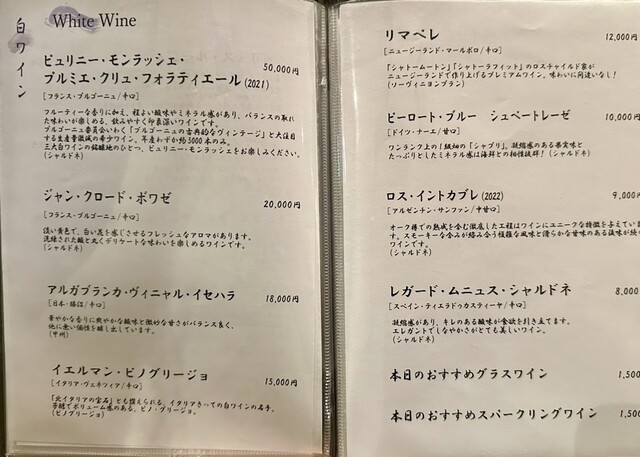 白ワイン
White Wine
ピュリニー・モンラッシェ・
プルミエ・クリュ・フォラティエール(2021)
50,000円
[フランス・ブルゴーニュ/辛口]
フルーティーな香りに加え、程よい酸味やミネラル感があり、バランスの取れ
た味わいが楽しめる、飲みやすく印象深いワインです。
ブルゴーニュ委員会いわく「ブルゴーニュの古典的なヴィンテージ」と大注目
する生産量激減の希少ワイン。年産わずか約5000本のみ。
三大白ワインの銘醸地のひとつ、ピュリニー・モンラッシェをお楽しみください。
(シャルドネ)
ジャン・クロード・ボワゼ
20,000円
[フランス・ブルゴーニュ/辛口]
淡い黄色で、白い花を感じさせるフレッシュなアロマがあります。
洗練された酸と丸くデリケートな味わいを楽しめるワインです。
(シャルドネ)
アルガブランカ・ヴィニャル・イセハラ
18,000円
[日本・勝沼/辛口]
華やかな香りに爽やかな酸味と微妙な甘さがバランス良く、
他に無い個性を醸し出しています。
(甲州)
イエルマン・ピノグリージョ
15,000円
[イタリア・ヴェネツィア/辛口]
「北イタリアの宝石」とも讃えられる、イタリアきっての白ワインの名手。
芳醇でボリューム感のある、ピノ・グリージョ。
(ピノグリージョ)
リマペレ
12,000円
[ニュージーランド・マールボロ/辛口]
「シャトームートン」「シャトーラフィット」のロスチャイルド家が
ニュージーランドで作り上げるプレミアムワイン。味わいに間違いなし!
(ソーヴィニヨンブラン)
ピーロート・ブルー シュペートレーゼ
10,000円
[ドイツ・ナーエ/甘口]
ワンランク上の1級畑の「シャブリ」。凝縮感のある果実味と
たっぷりとしたミネラル感は海鮮との相性抜群!(シャルドネ)
ロス・イントカブレ(2022)
9,000円
[アルゼンチン・サンファン/中甘口]
オーク樽での熟成を含む徹底した工程はワインにユニークな特徴を与えていま
す。スモーキーな含みが絡み合う複雑な風味と滑らかな甘味のある後味が続く
ワインです。
(シャルドネ)
レガード・ムニュス・シャルドネ
8,000
[スペイン・ティエラドゥカスティーヤ/辛口]
凝縮感があり、キレのある酸味が食欲を引き立てます。
エレガントでしなやかさがとても美しいワイン。
(シャルドネ)
本日のおすすめグラスワイン
1,500
本日のおすすめスパークリングワイン
1,500